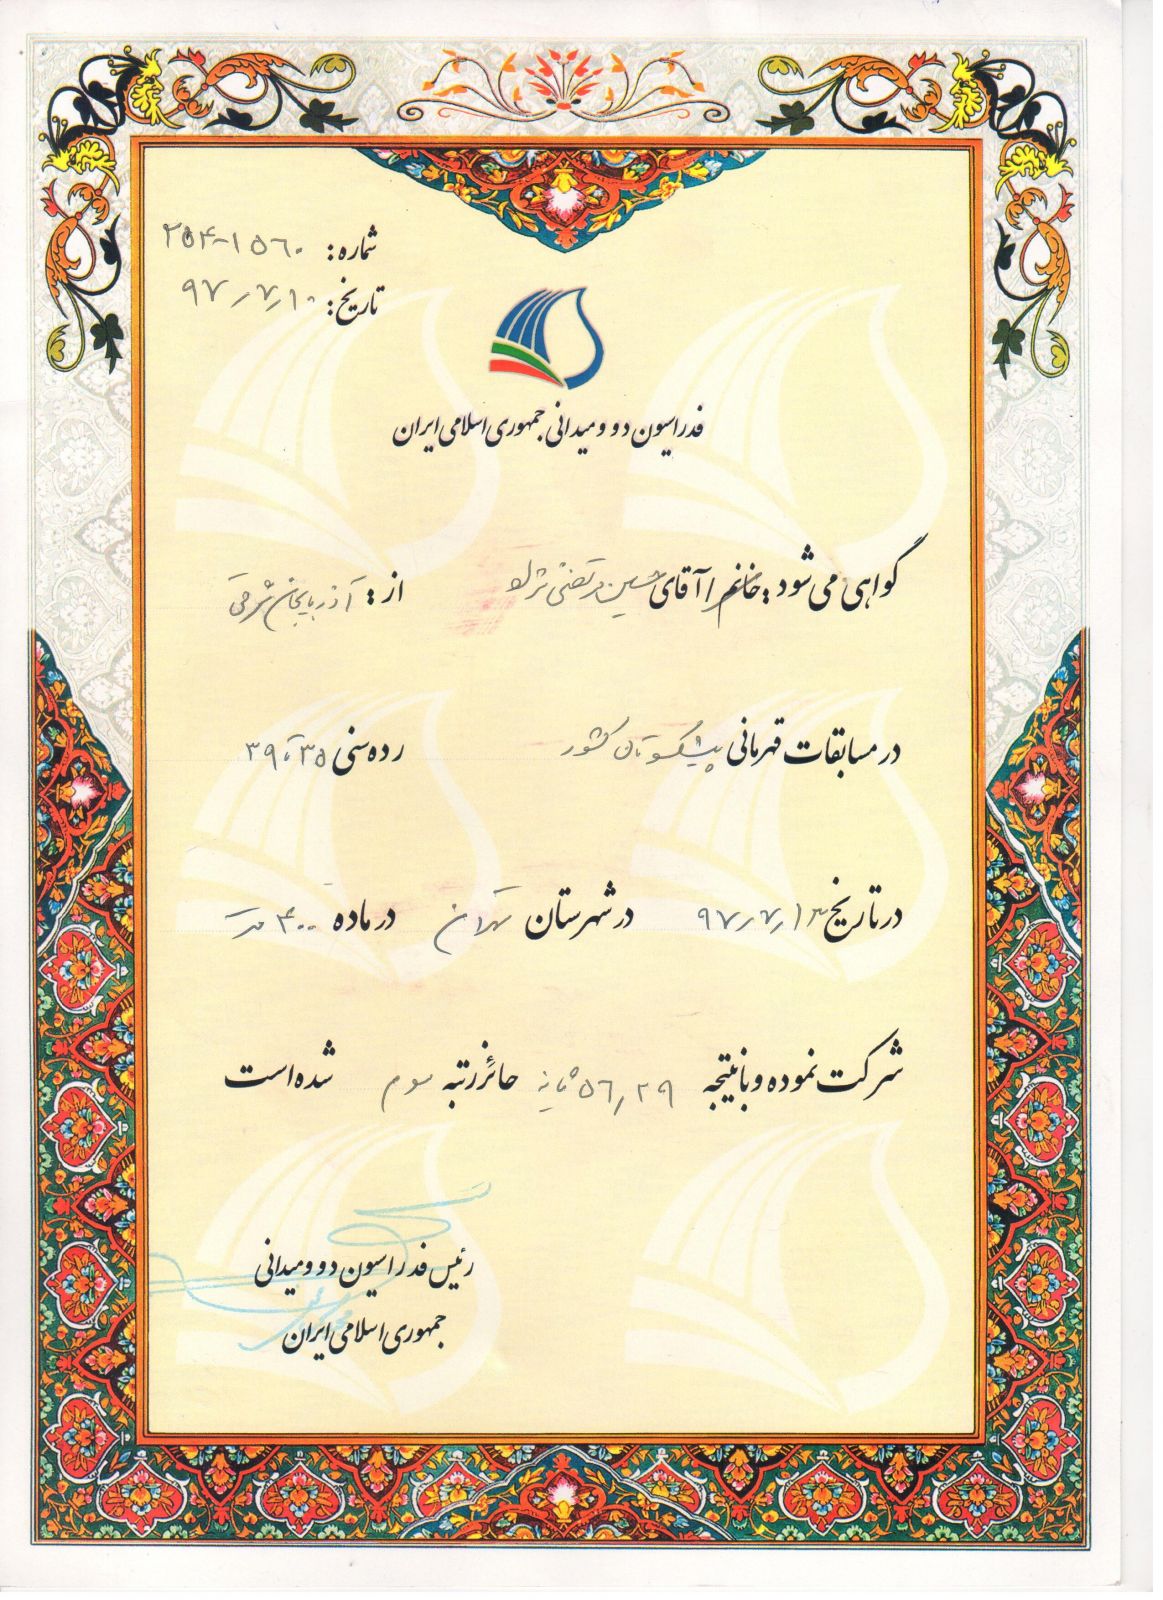 شماره: ۲۵۴-۱۵۶۰
تاریخ: ۹۷/۷/۱۰
فدراسیون دو و میدانی جمهوری اسلامی ایران
گواهی می شود: خانم / آقای حسین مرتضی نژاد از: آذربایجان شرقی
در مسابقات قهرمانی پیشکسوتان کشور رده سنی ۳۵ تا ۳۹
در تاریخ ۹۷/۷/۱۳ در شهرستان تهران در ماده ۴۰۰ متر
شرکت نموده و با نتیجه ۵۶/۲۹ ثانیه حائز رتبه سوم شده است
رئیس فدراسیون دو و میدانی
جمهوری اسلامی ایران